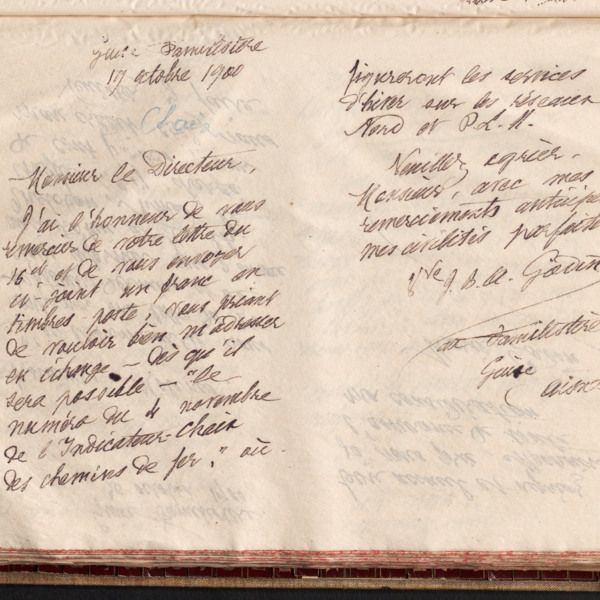 Guise Familistère
17 octobre 1900
Chaix
Monsieur le Directeur,
J'ai l'honneur de vous
remercier de votre lettre du
16 ct et de vous envoyer
ci-joint un franc en
timbres poste, vous priant
de vouloir bien m'adresser
en échange - dès qu'il
sera possible - "le
numéro du 4 novembre
de l'Indicateur-Chaix
des chemins de fer," où
figureront les services
d'hiver sur les réseaux
Nord et P.L.M.
Veuillez agréer,
Monsieur, avec mes
remerciements anticipés
mes civilités parfaites
Vve J. B. A. Godin
au Familistère
Guise
Aisne